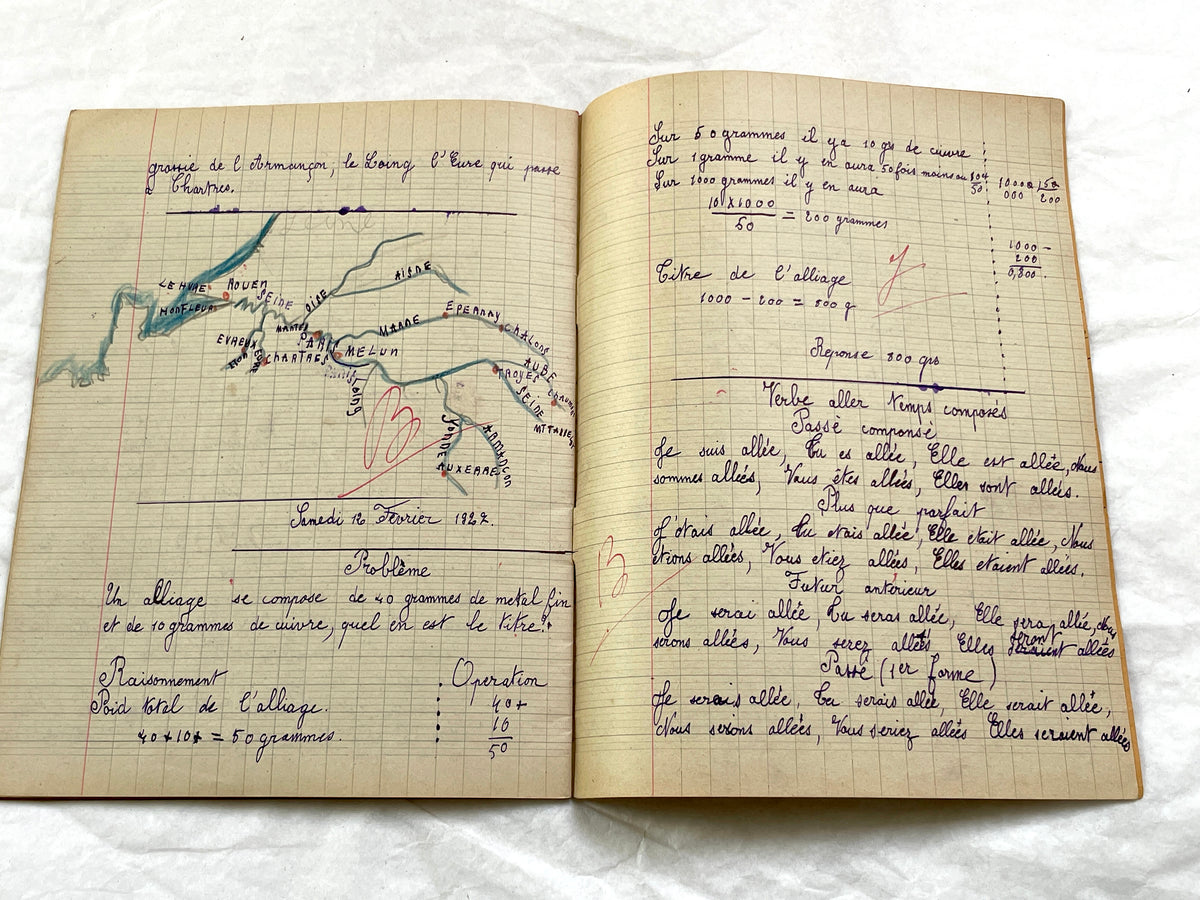 grossie de l'Armançon, le Loing l'Eure qui passe
à Chartres.
LE HVRE
ROUEN
HONFLEUR
SEINE
OISE
AISNE
MANTES
EVREUX
EURE
CHARTRES
PARIS
MELUN
MARNE
EPERNAY
CHALONS
AUBE
TROYES
CHAUMONT
SEINE
Loing
YONNE
ARMANÇON
AUXERRE
B
Samedi 12 Février 1927.
Problème
Un alliage se compose de 40 grammes de metal fin
et de 10 grammes de cuivre, quel en est le titre?
Raisonnement
Operation
Poid total de l'alliage.
40 + 10 = 50 grammes.
40+
10
50
Sur 50 grammes il y a 10 grs de cuivre
Sur 1 gramme il y en aura 50 fois moins ou 10
50
Sur 1000 grammes il y en aura
10 X 1000
50
= 200 grammes
10000 50
000 200
1000 -
200
0,800
Titre de l'alliage
1000 - 200 = 800 g
Réponse 800 grs
Verbe aller temps composés
Passé componsé
Je suis allée, Tu es allée, Elle est allée, Nous
sommes allées, Vous êtes allées, Elles sont allées.
Plus que parfait
J'étais allée, Tu étais allée, Elle etait allée, Nous
etions allées, Vous etiez allées, Elles etaient allées.
B
Futur antérieur
Je serai allée, Tu seras allée, Elle sera allée, Nous
serons allées, Vous serez allées Elles seront allées
Passé (1er forme)
Je serais allée, Tu serais allée, Elle serait allée,
Nous serions allées, Vous seriez allées Elles seraient allées